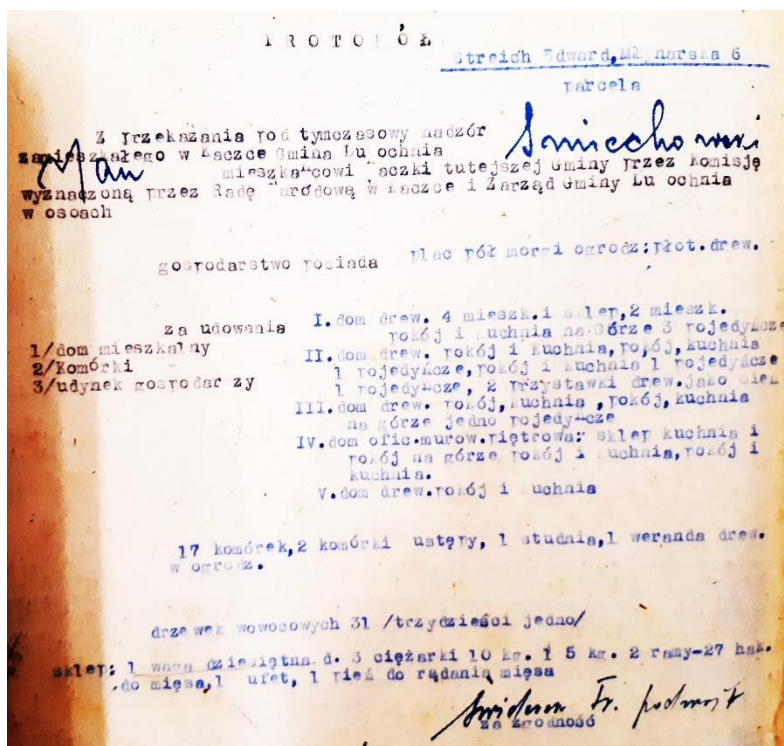 PROTOKÓŁ
Streich Edward, Młynarska 6
parcela
Z przekazania pod tymczasowy nadzór Śmiechowski
zamieszkałego w Łaczce Gmina Lu ochnia
Jan mieszkańcowi Łaczki tutejszej Gminy przez Komisję
wyznaczoną przez Radę Narodową w Łaczce i Zarząd Gminy Lu ochnia
w osoach
gospodarstwo posiada plac pół morgi ogrodz:płot.drew.
za udowania
1/dom mieszkalny
2/Komórki
3/udynek gospodar zy
I.dom drew. 4 mieszk.i sklep,2 mieszk.
pokój i kuchnia na Górze 3 pojedyńcze
II.dom drew. pokój i Kuchnia,pokój,kuchnia
1 pojedyńcze,pokój i kuchnia 1 pojedyńcze
1 pojedyńcze, 2 przystawki drew.jako
III.dom drew. pokój,kuchnia ,pokój,kuchnia
na górze jedno pojedyńcze
IV.dom ofic.murow.piętrowa: sklep kuchnia i
pokój na górze pokój i kuchnia,pokój i
kuchnia.
V.dom drew.pokój i kuchnia
17 komórek,2 komórki ustępy, 1 studnia,1 weranda drew.
w ogrodz.
drzewek wowocowych 31 /trzydzieści jedno/
sklep: 1 waga dziesiętna d. 3 ciężarki 10 kg. i 5 kg. 2 ramy-27 hak.
do mięsa,1 ufet, 1 pień do rądania mięsa
Świderek Fr.
za zgodność